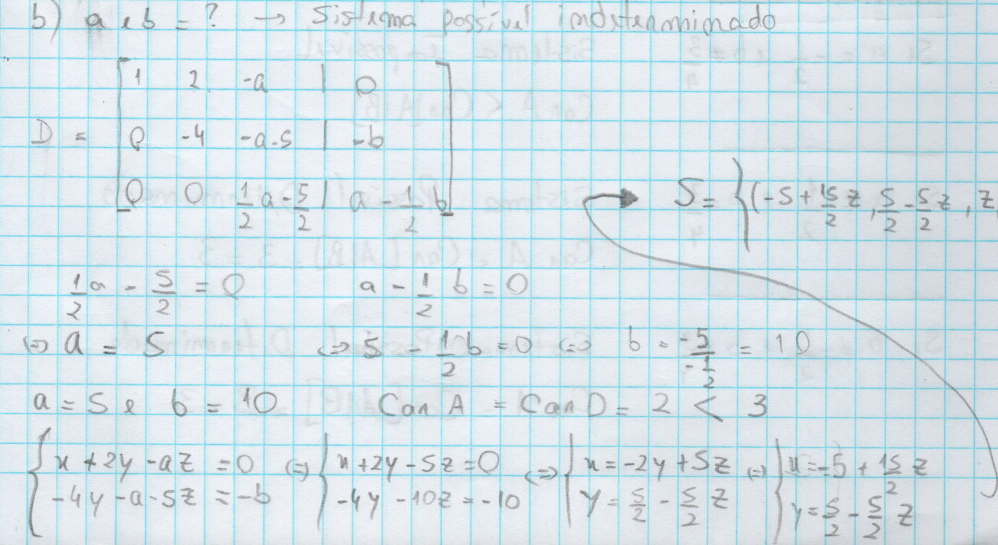 b) a e b = ? → Sistema possível indeterminado
D = [ 1 2 -a | 0
0 -4 -a-5 | -b
0 0 1/2 a - 5/2 | a - 1/2 b ]
S = { (-5 + 15/2 z, 5/2 - 5/2 z, z
1/2 a - 5/2 = 0 a - 1/2 b = 0
⇔ a = 5 ⇔ 5 - 1/2 b = 0 ⇔ b = -5/(-1/2) = 10
a = 5 e b = 10 Car A = Car D = 2 < 3
{ x + 2y - az = 0 ⇔ { x + 2y - 5z = 0 ⇔ { x = -2y + 5z ⇔ { x = -5 + 15/2 z
-4y - a - 5z = -b -4y - 10z = -10 y = 5/2 - 5/2 z y = 5/2 - 5/2 z